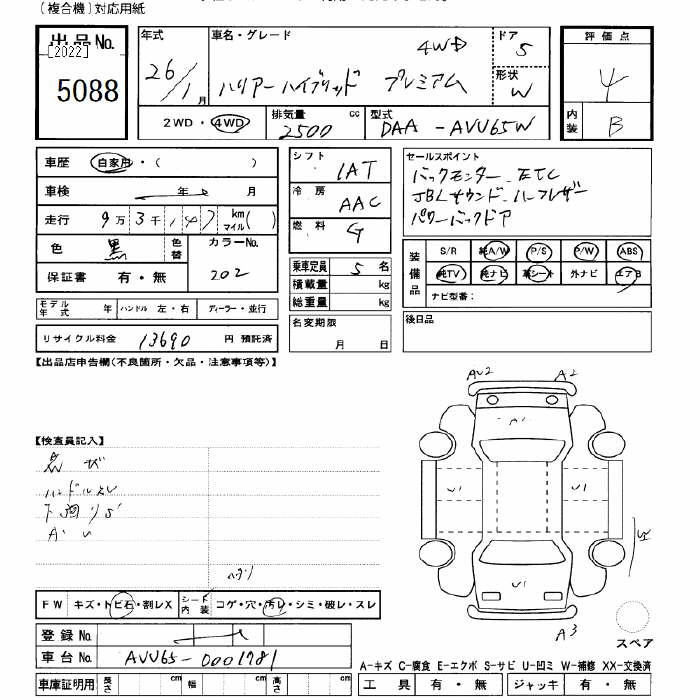 (複合機)対応用紙
出品No.
[2022]
5088
年式 26/1月
車名・グレード 4WD
ハリアーハイブリッド プレミアム
ドア 5
形状 W
2WD・4WD
排気量 2500 cc
型式 DAA-AVU65W
評価点 4
内装 B
車歴 自家用・( )
車検 年 月
走行 9万3千147 km マイル( )
色 黒 色替 カラーNo. 202
保証書 有・無
シフト IAT
冷房 AAC
燃料 G
乗車定員 5名
積載量 kg
総重量 kg
名変期限 月 日
セールスポイント
バックモニター ETC
JBLサウンド ハーフレザー
パワーバックドア
装備品 S/R 純A/W P/S P/W ABS
純TV 純ナビ 革シート 外ナビ エアB
ナビ型番:
後日品
モデル年式 年 ハンドル 左・右 ディーラー・並行
リサイクル料金 13690 円 預託済
【出品店申告欄(不良箇所・欠品・注意事項等)】
【検査員記入】
ハンドルスレ
下廻りサ
FW キズ・トビ石・割レX シート内装 コゲ・穴・汚レ・シミ・破レ・スレ
登録No.
車台No. AVU65-0001781
車庫証明用 長さ cm 幅 cm 高さ cm
AU2 A2
A1
U1 U1
U1
A3
スペア
A-キズ C-腐食 E-エクボ S-サビ U-凹ミ W-補修 XX-交換済
工具 有・無 ジャッキ 有・無